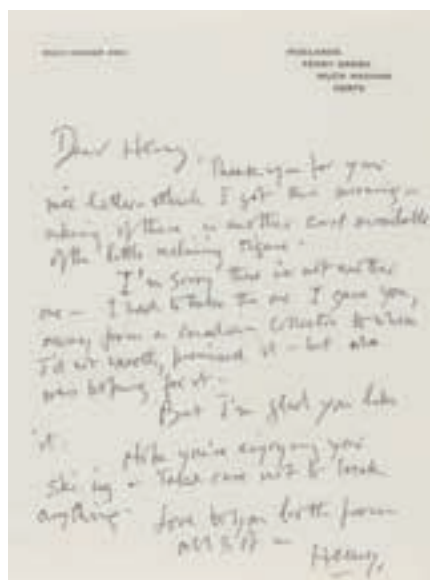 MUCH HADHAM
HOGLANDS
PERRY GREEN
MUCH HADHAM
HERTS
Dear Henry,
Thank you for your
nice letter which I got this morning –
asking if there is another cast available
of the little reclining figure.
I'm sorry there is not another
one – I had to take the one I gave you,
away from a Canadian collector to whom
I'd not exactly, promised it – but who
was hoping for it –
But I'm glad you like
it.
Hope you're enjoying your
Ski-ing – Take care not to break
anything.
Love to you both from
all 3 of us –
Henry.